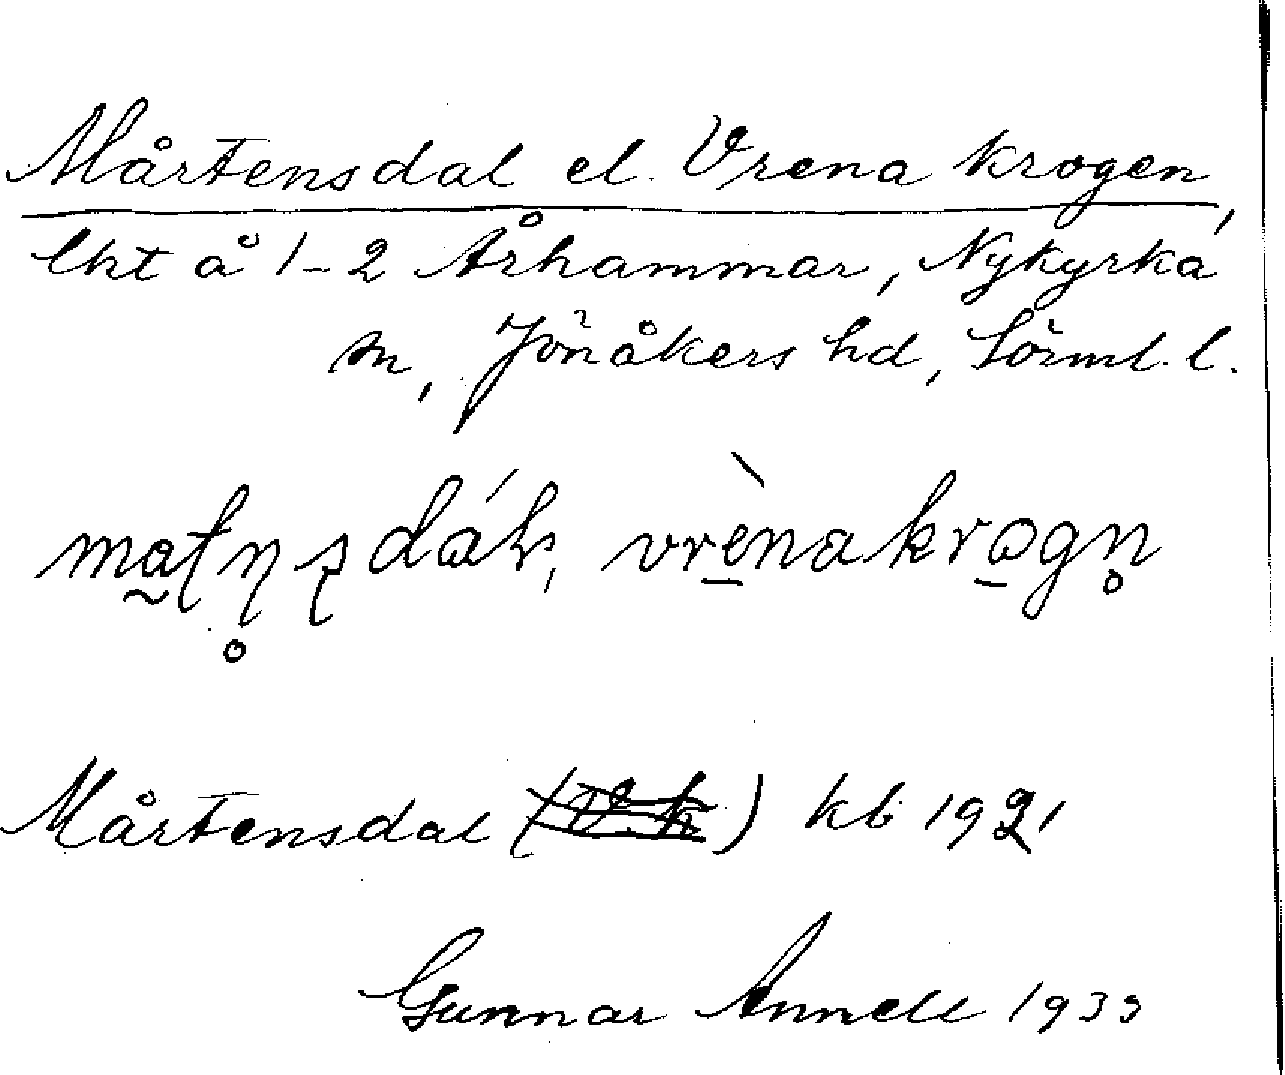 Mårtensdal el. Vrena krogen,
lht å 1-2 Århammar, Nykyrka
sn, Jönåkers hd, Sörml. l.
vrènakrogn̥
Mårtensdal (V. k) kb 1921
Gunnar Annell 1933